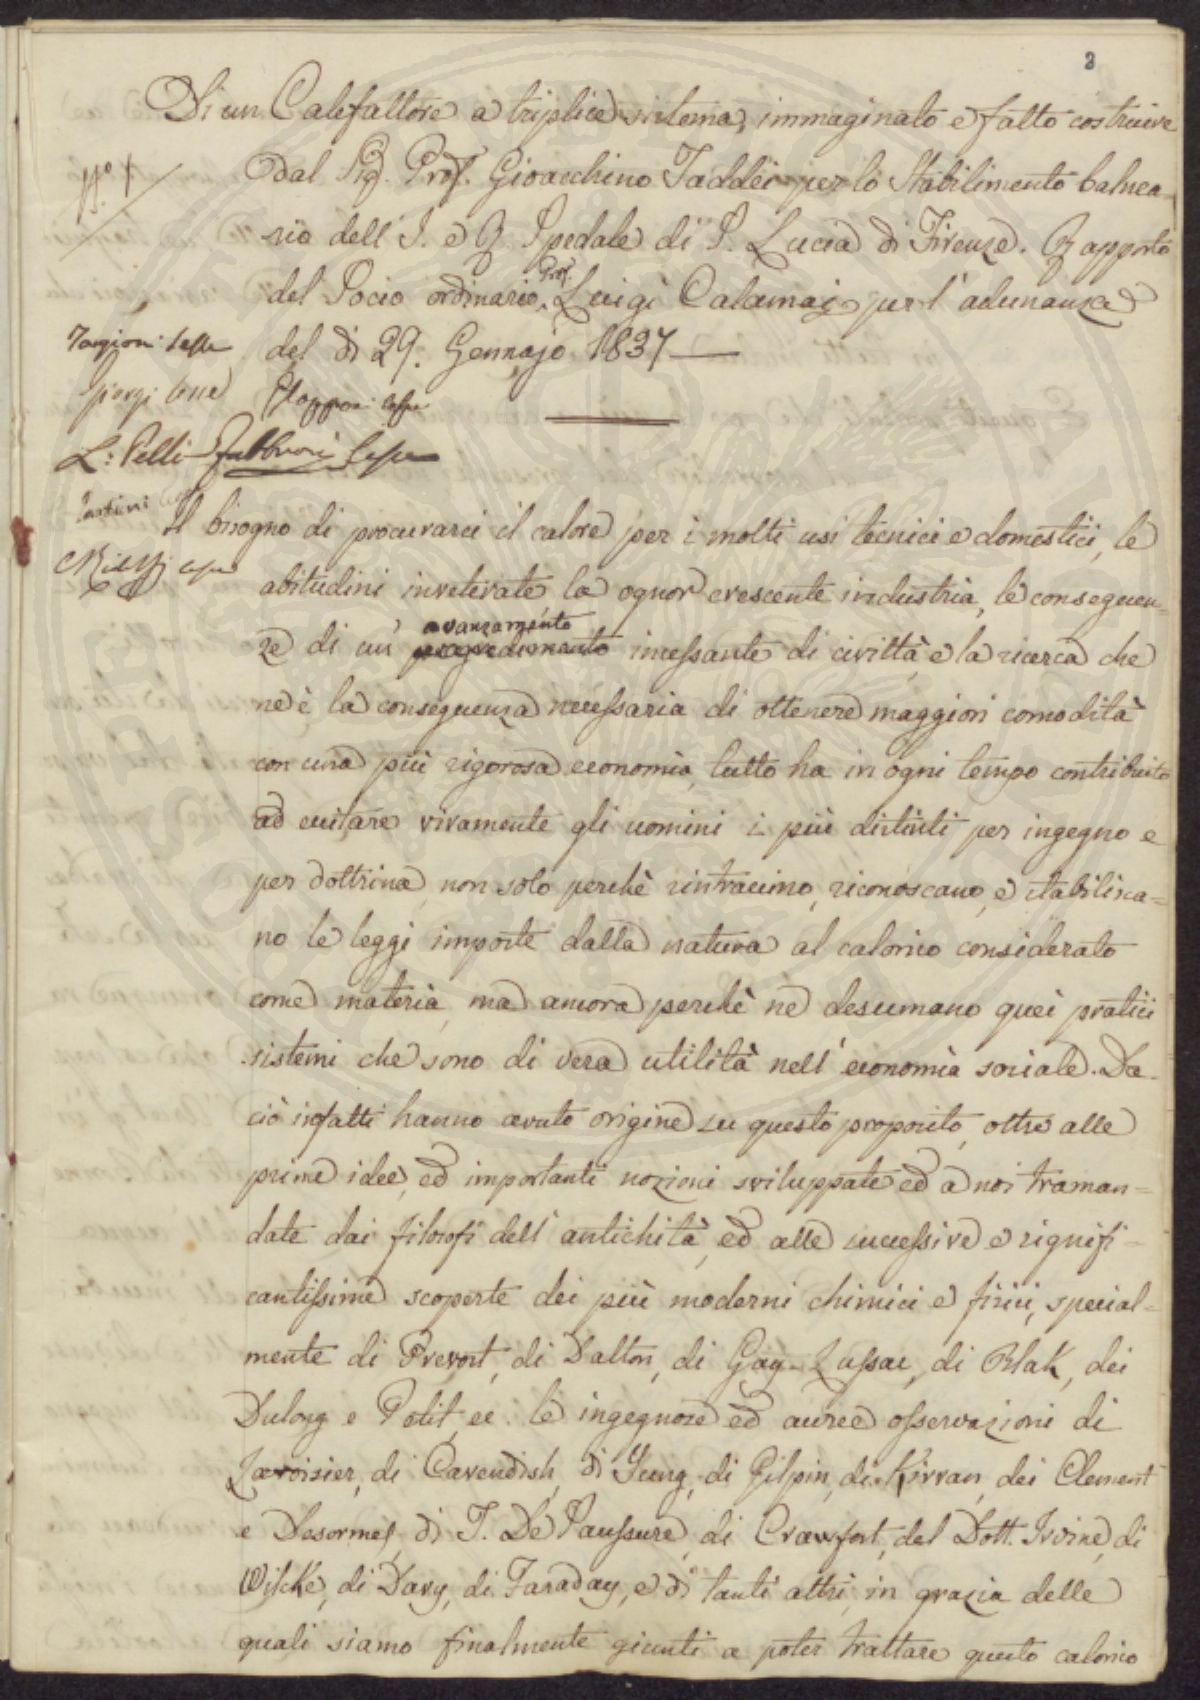 3
Di un Calefattore a triplice sistema, immaginato e fatto costruire
dal Sig. Prof. Gioacchino Taddei per lo Stabilimento balnea-
rio dell' I. e R. Spedale di S. Lucia di Firenze. Rapporto
del Socio ordinario Prof. Luigi Calamai per l'adunanza
del dì 29. Gennajo 1837
L: Pelli Fabbroni
Il bisogno di procurarci il calore per i molti usi tecnici e domestici, le
abitudini inveterate la ognor crescente industria, le conseguen=
avanzamento
ze di un' incessante di civiltà, e la ricerca che
ne è la conseguenza necessaria di ottenere maggiori comodità
con una più rigorosa economia, tutto ha in ogni tempo contribuito
ad eccitare vivamente gli uomini i più distinti per ingegno e
per dottrina, non solo perchè rintraccino, riconoscano, e stabilisca=
no le leggi imposte dalla natura al calorico considerato
come materia, ma ancora perchè ne desumano quei pratici
sistemi che sono di vera utilità nell' economia sociale. Da
ciò infatti hanno avuto origine su questo proposito, oltre alle
prime idee, ed importanti nozioni sviluppate ed a noi traman=
date dai filosofi dell' antichità, ed alle successive e signifi-
cantissime scoperte dei più moderni chimici e fisici, special=
mente di Prevost, di Dalton, di Gay-Lussac, di Blak, dei
Dulong e Petit, ec. le ingegnose ed auree osservazioni di
Lavoisier, di Cavendish, di Yung, di Gilpin, di Kirvan, dei Clement
e Desormes, di T. De Saussure, di Crawfort, del Dott. Irvine, di
Wilcke, di Davy, di Faraday, e di tanti altri, in grazia delle
quali siamo finalmente giunti a poter trattare questo calorico